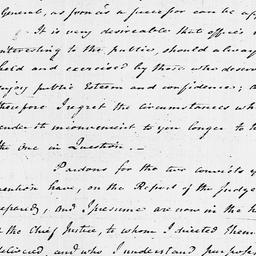 General, as soon as a successor can be ap
It is very desireable that offices
interesting to the public, should alway
held and exercised by those who deser
enjoy public Esteem and confidence; a
therefore I regret the circumstances wh
render it inconvenient to you longer to h
the one in Question. —
Pardons for the two convicts y
mention have, on the Report of the Judge
prepared, and I presume are now in the h
of the Chief Justice, to whom I directed them
delivered, and who I understand purposes